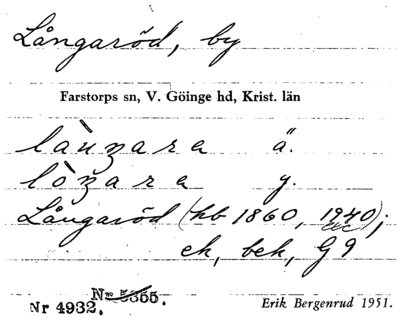 Långaröd, by
Farstorps sn, V. Göinge hd, Krist. län
làuŋara ä.
lòŋara y.
Långaröd (hb 1860, 1940);
ek, bek, G9
Nr 5355.
Nr 4932.
Erik Bergenrud 1951.